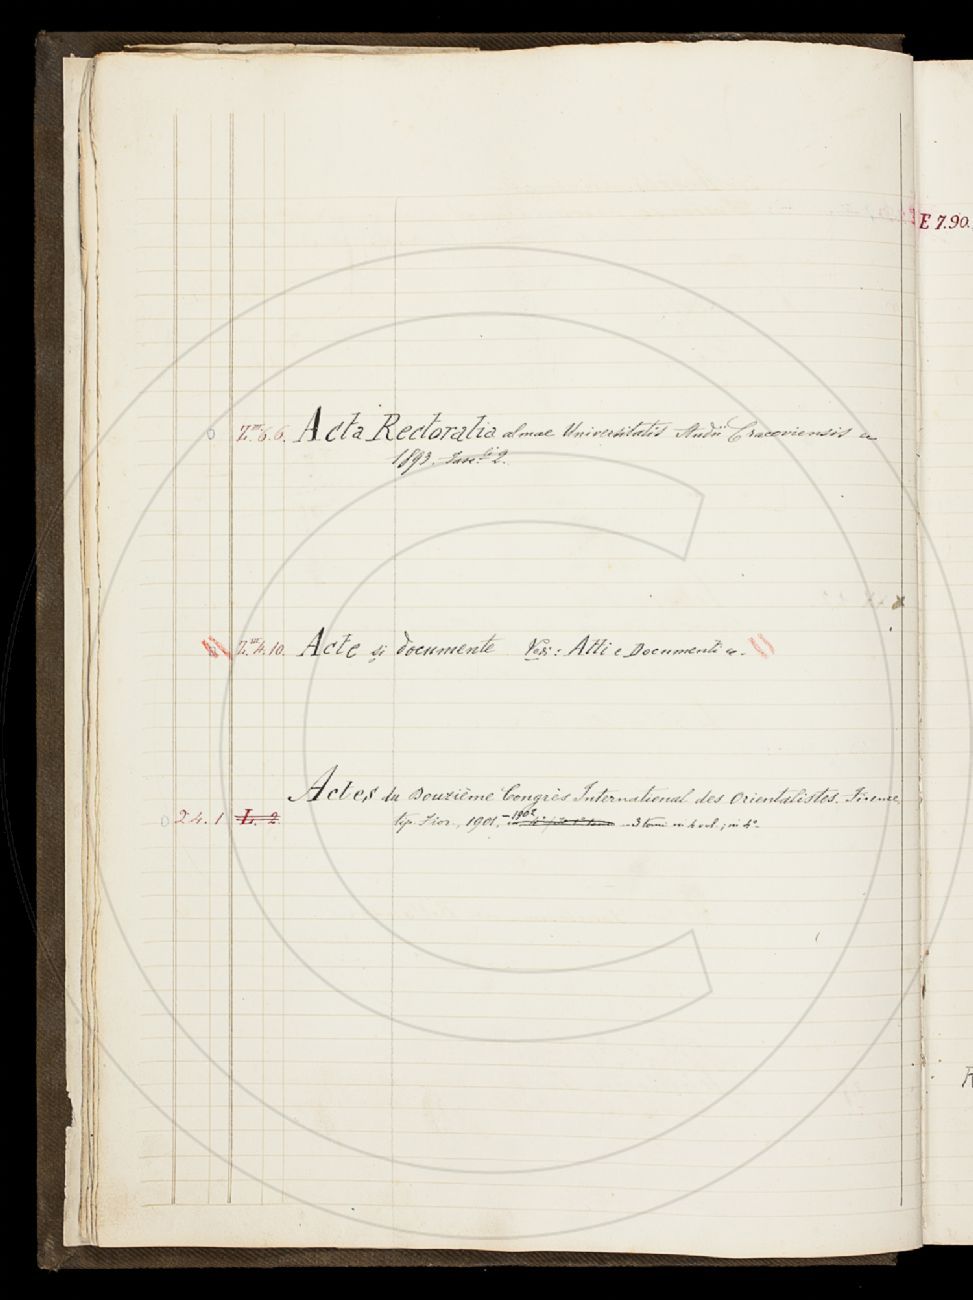 E 7.90.
Z.III.6.6. Acta Rectoralia almae Universitatis Studii Cracoviensis &
1893. Fasc.li 2.
Z.III.4.10. Acte și documente Vedi: Atti e Documenti &.
Actes du Douzième Congrès International des Orientalistes. Firenze,
24.1 L. 2 tip. Fior., 1901.-1902 3 tomi in 4 vol.; in 4°.